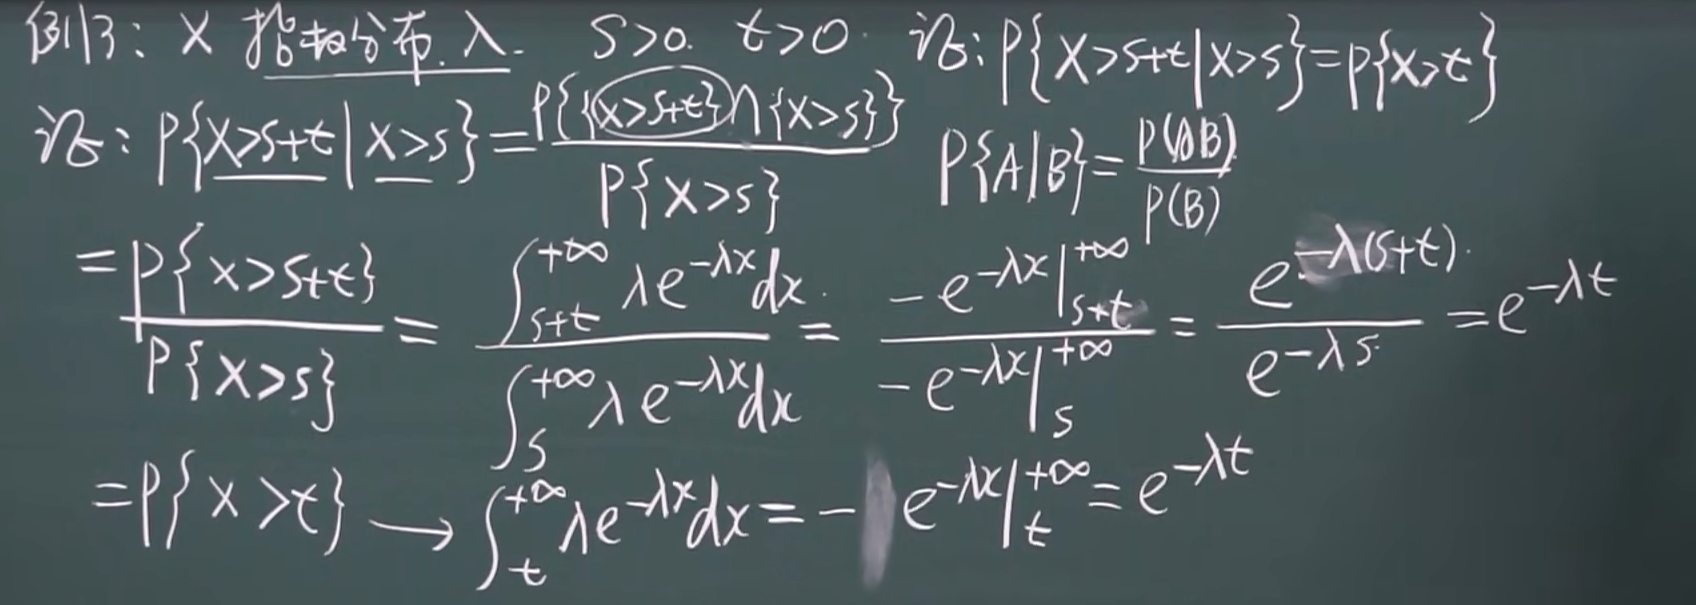 例13: X 指数分布. λ. S>0. t>0. 证: P{X>s+t|X>s}=P{X>t}
证: P{X>s+t|X>s}=P{{X>s+t}∩{X>s}}/P{X>s} P{A|B}=P(AB)/P(B)
=P{X>s+t}/P{X>s}=∫_{s+t}^{+∞} λe^{-λx}dx/∫_{s}^{+∞} λe^{-λx}dx=-e^{-λx}|_{s+t}^{+∞}/-e^{-λx}|_{s}^{+∞}=e^{-λ(s+t)}/e^{-λs}=e^{-λt}
=P{X>t}→∫_{t}^{+∞} λe^{-λx}dx=-e^{-λx}|_{t}^{+∞}=e^{-λt}